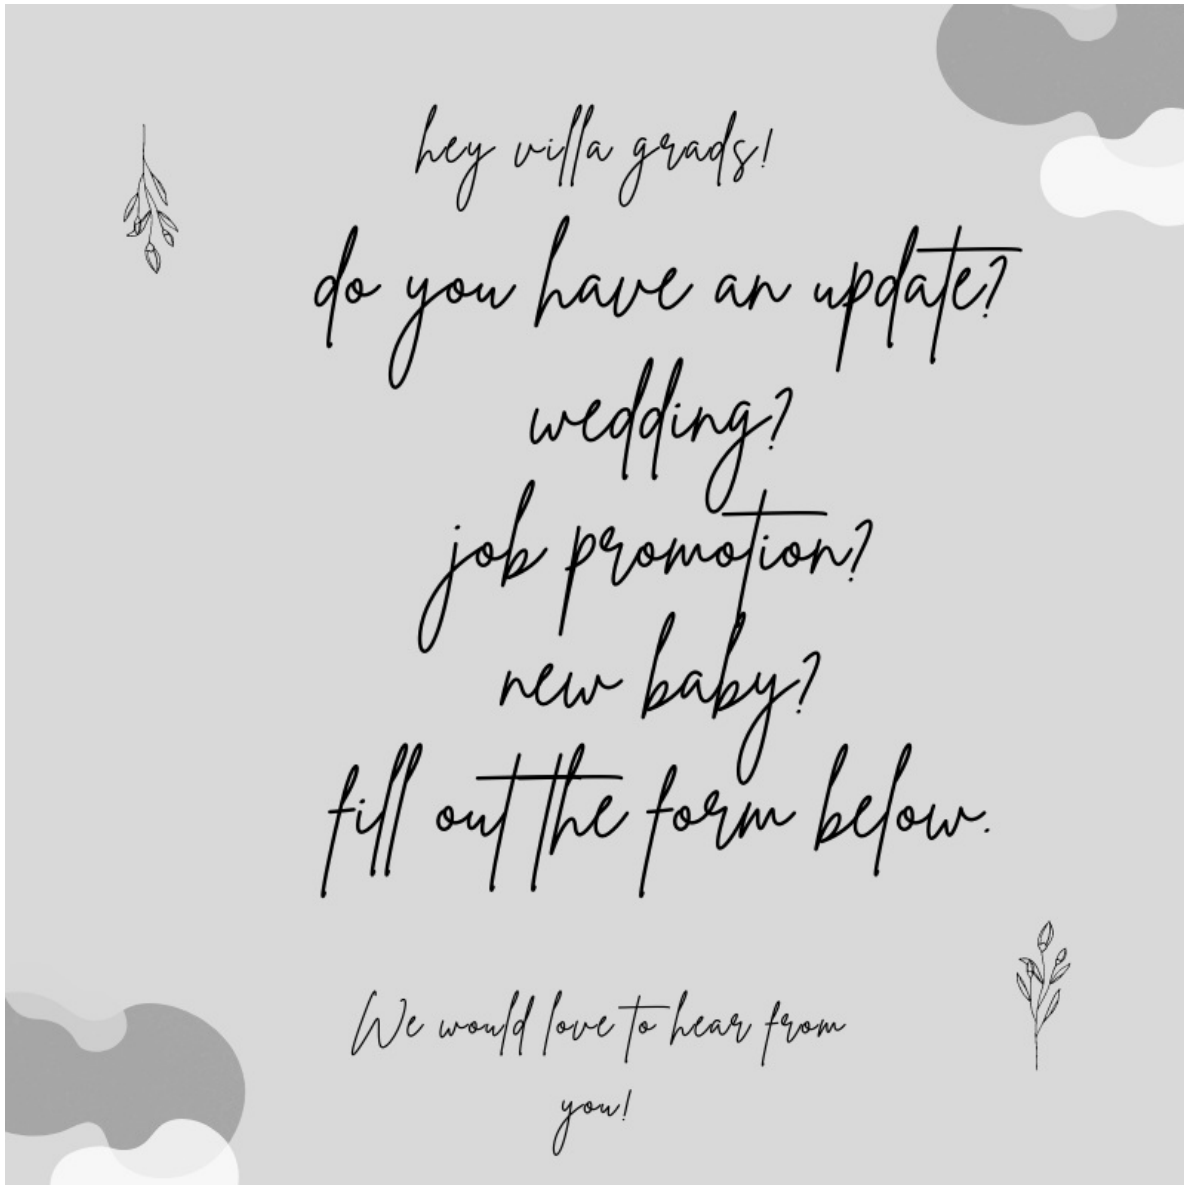 hey villa grads!
do you have an update?
wedding?
job promotion?
new baby?
fill out the form below.
We would love to hear from
you!